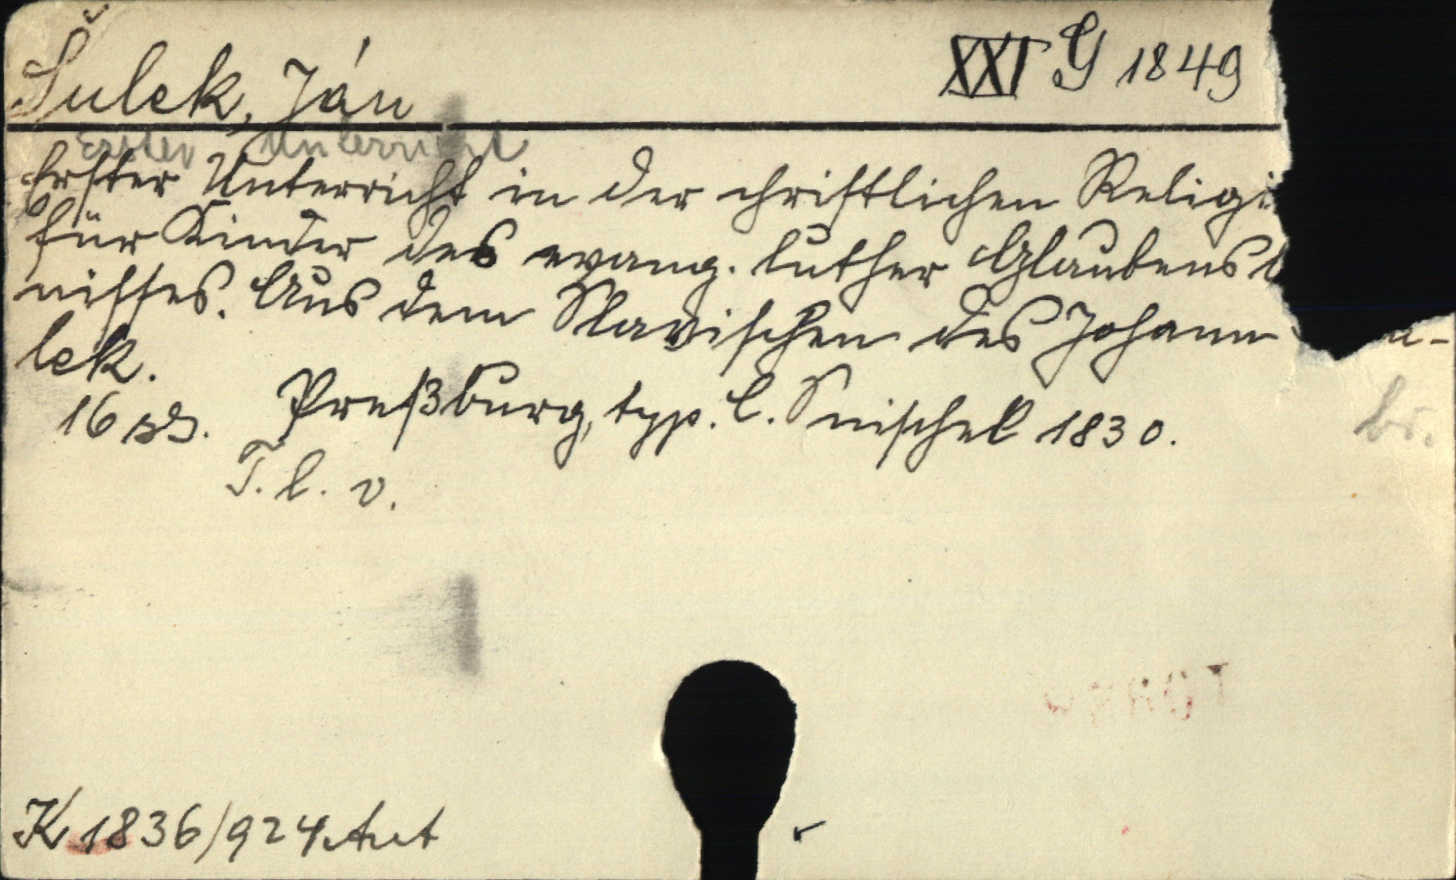 Šulek, Ján
XXI G 1849
Erster Unterricht
Erster Unterricht in der christlichen Religi
für Kinder des evang. luther Glaubens
nisses. Aus dem Slavischen des Johann u-
lek.
16 ss. Preßburg, typ. C. Snischek 1830.
br.
T. l. v.
K 1836/924 Ant